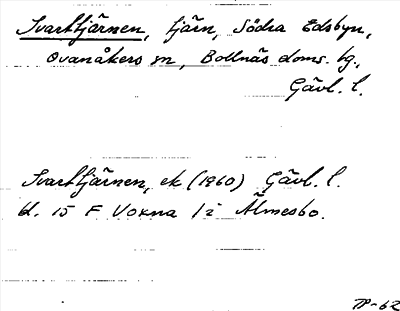 Svarttjärnen, tjärn, Södra Edsbyn,
Ovanåkers sn, Bollnäs doms. tg.,
Gävl. l.
Svarttjärnen, ek (1960) Gävl. l.
bl. 15 F Voxna /i Älmesbo.
TP-62